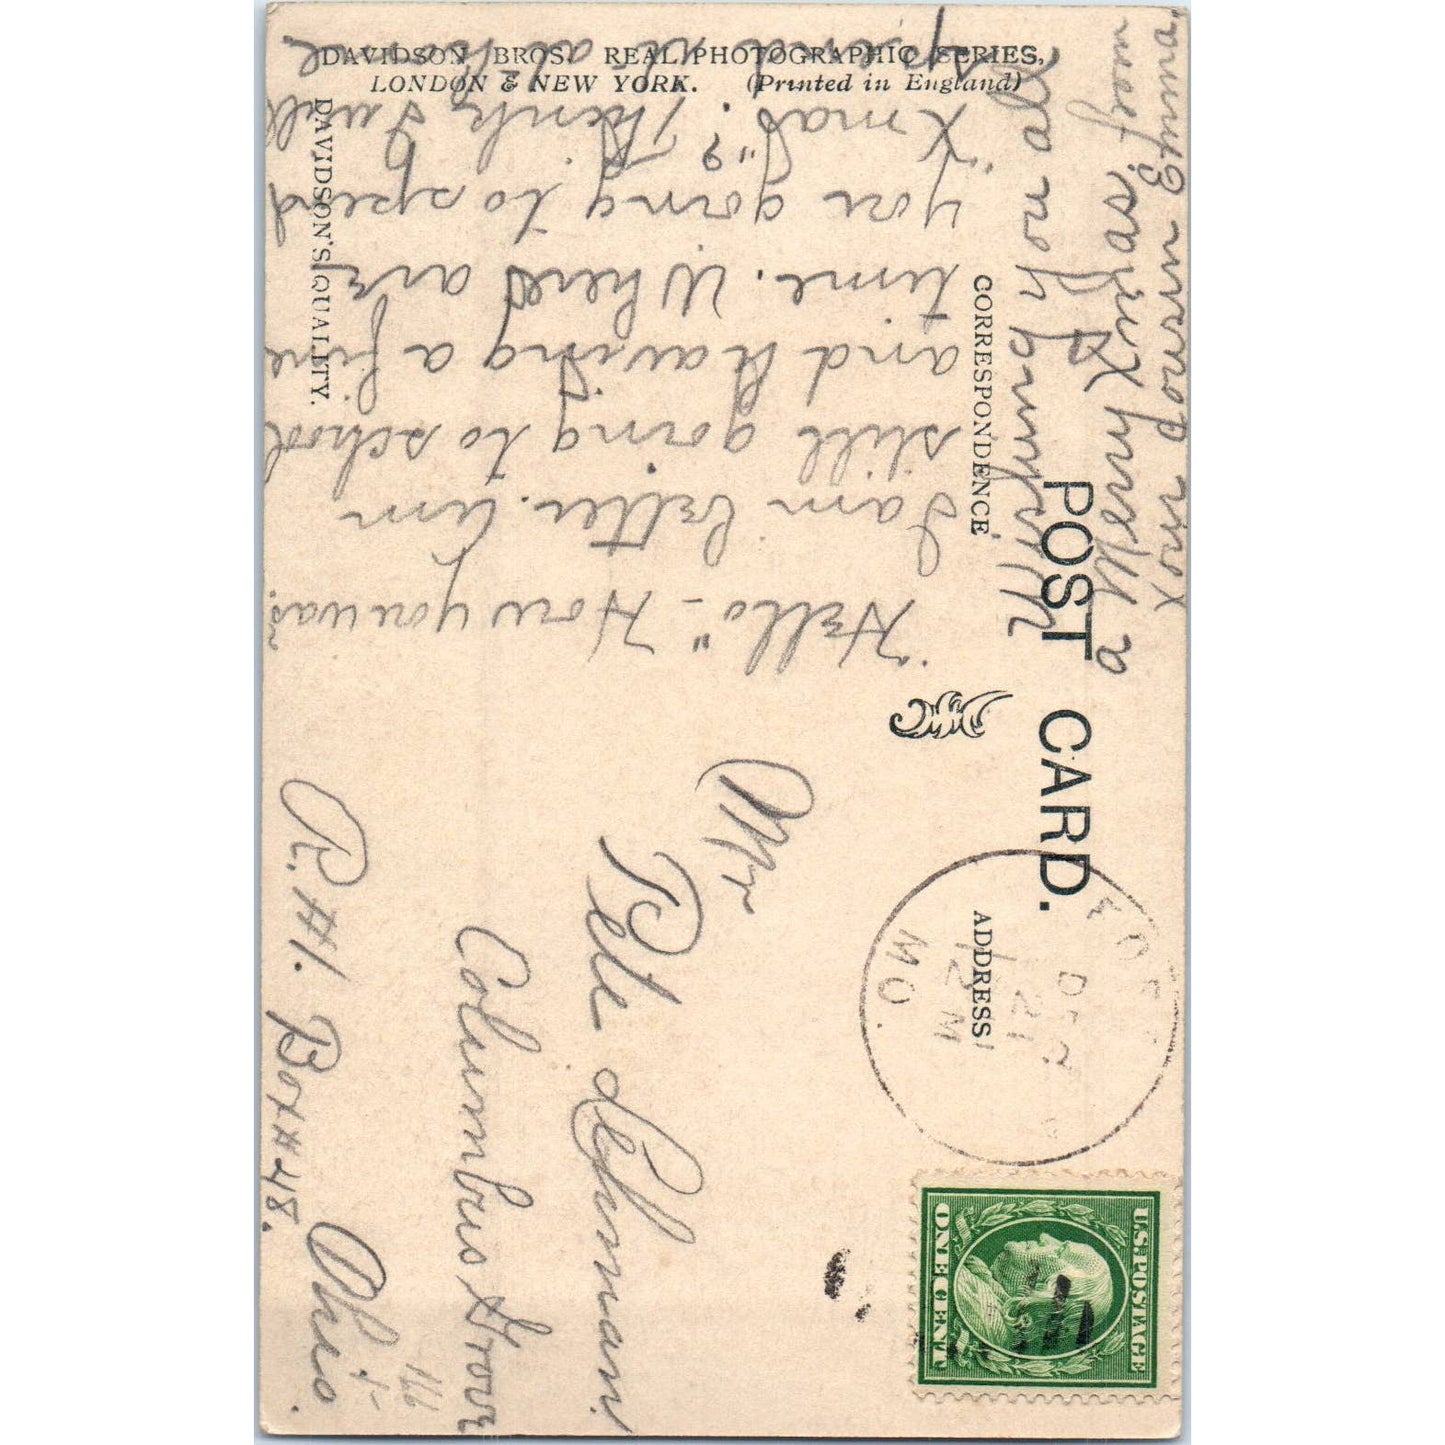 DAVIDSON BROS. REAL PHOTOGRAPHIC SERIES,
LONDON & NEW YORK. (Printed in England)
DAVIDSON'S QUALITY.
POST CARD.
CORRESPONDENCE
ADDRESS
"Hello" - How you was.
I am better. Am
still going to school
and having a fine
time. Where are
you going to spend
"Xmas"? Think I will
spend at
Wishing you all
a Merry Xmas
Your cousin Emma
MO.
DEC
21
12 M
U.S. POSTAGE
ONE CENT
Mr
Pete Lehman
Columbus Grove
Ohio.
R.H. Box # 48.